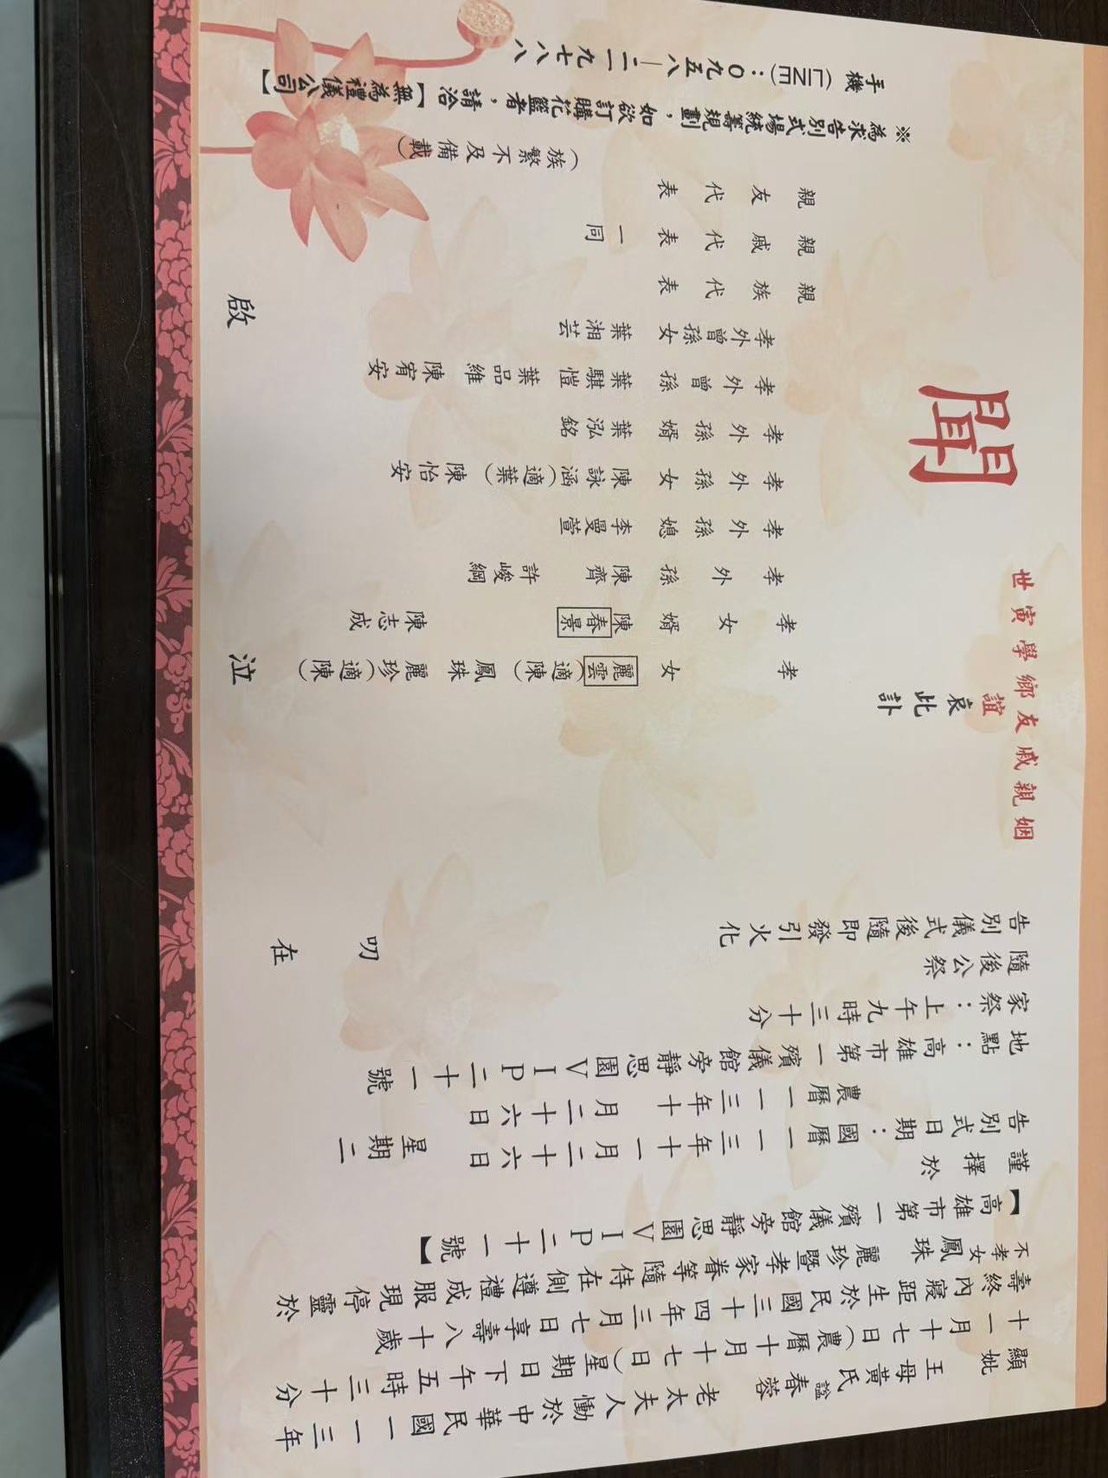 顯妣王母黃氏諡春蓉老太夫人慟於中華民國一一三年
十一月十七日(農曆十月十七日)星期日下午五時三十分
壽終內寢距生於民國三十四年三月七日享壽八十歲
不孝女鳳珠 麗珍暨孝家眷等隨侍在側遵禮成服現停靈於
【高雄市第一殯儀館旁靜思園VIP二十一號】
謹擇於
告別式日期：國曆一一三年十一月二十六日 星期二
農曆一一三年十月二十六日
地點：高雄市第一殯儀館旁靜思園VIP二十一號
家祭：上午九時三十分
隨後公祭
告別儀式後隨即發引火化
叨
在
姻親戚友鄉學寅世
誼
哀此訃
聞
孝女 麗雲(適陳) 鳳珠 麗珍(適陳) 泣
孝女婿 陳春景 陳志成
孝外孫 陳齊 許峻綱
孝外孫媳 李曼萱
孝外孫女 陳詠涵(適葉) 陳怡安
孝外孫婿 葉泓銘
孝外曾孫 葉騏愷 葉品維 陳宥安
孝外曾孫女 葉湘芸
啟
親族代表
親戚代表一同
親友代表
(族繁不及備載)
※為求告別式場統籌規劃，如欲訂購花籃者，請洽【無為禮儀公司】
手機(LINE)：0九五八—二一九七八八